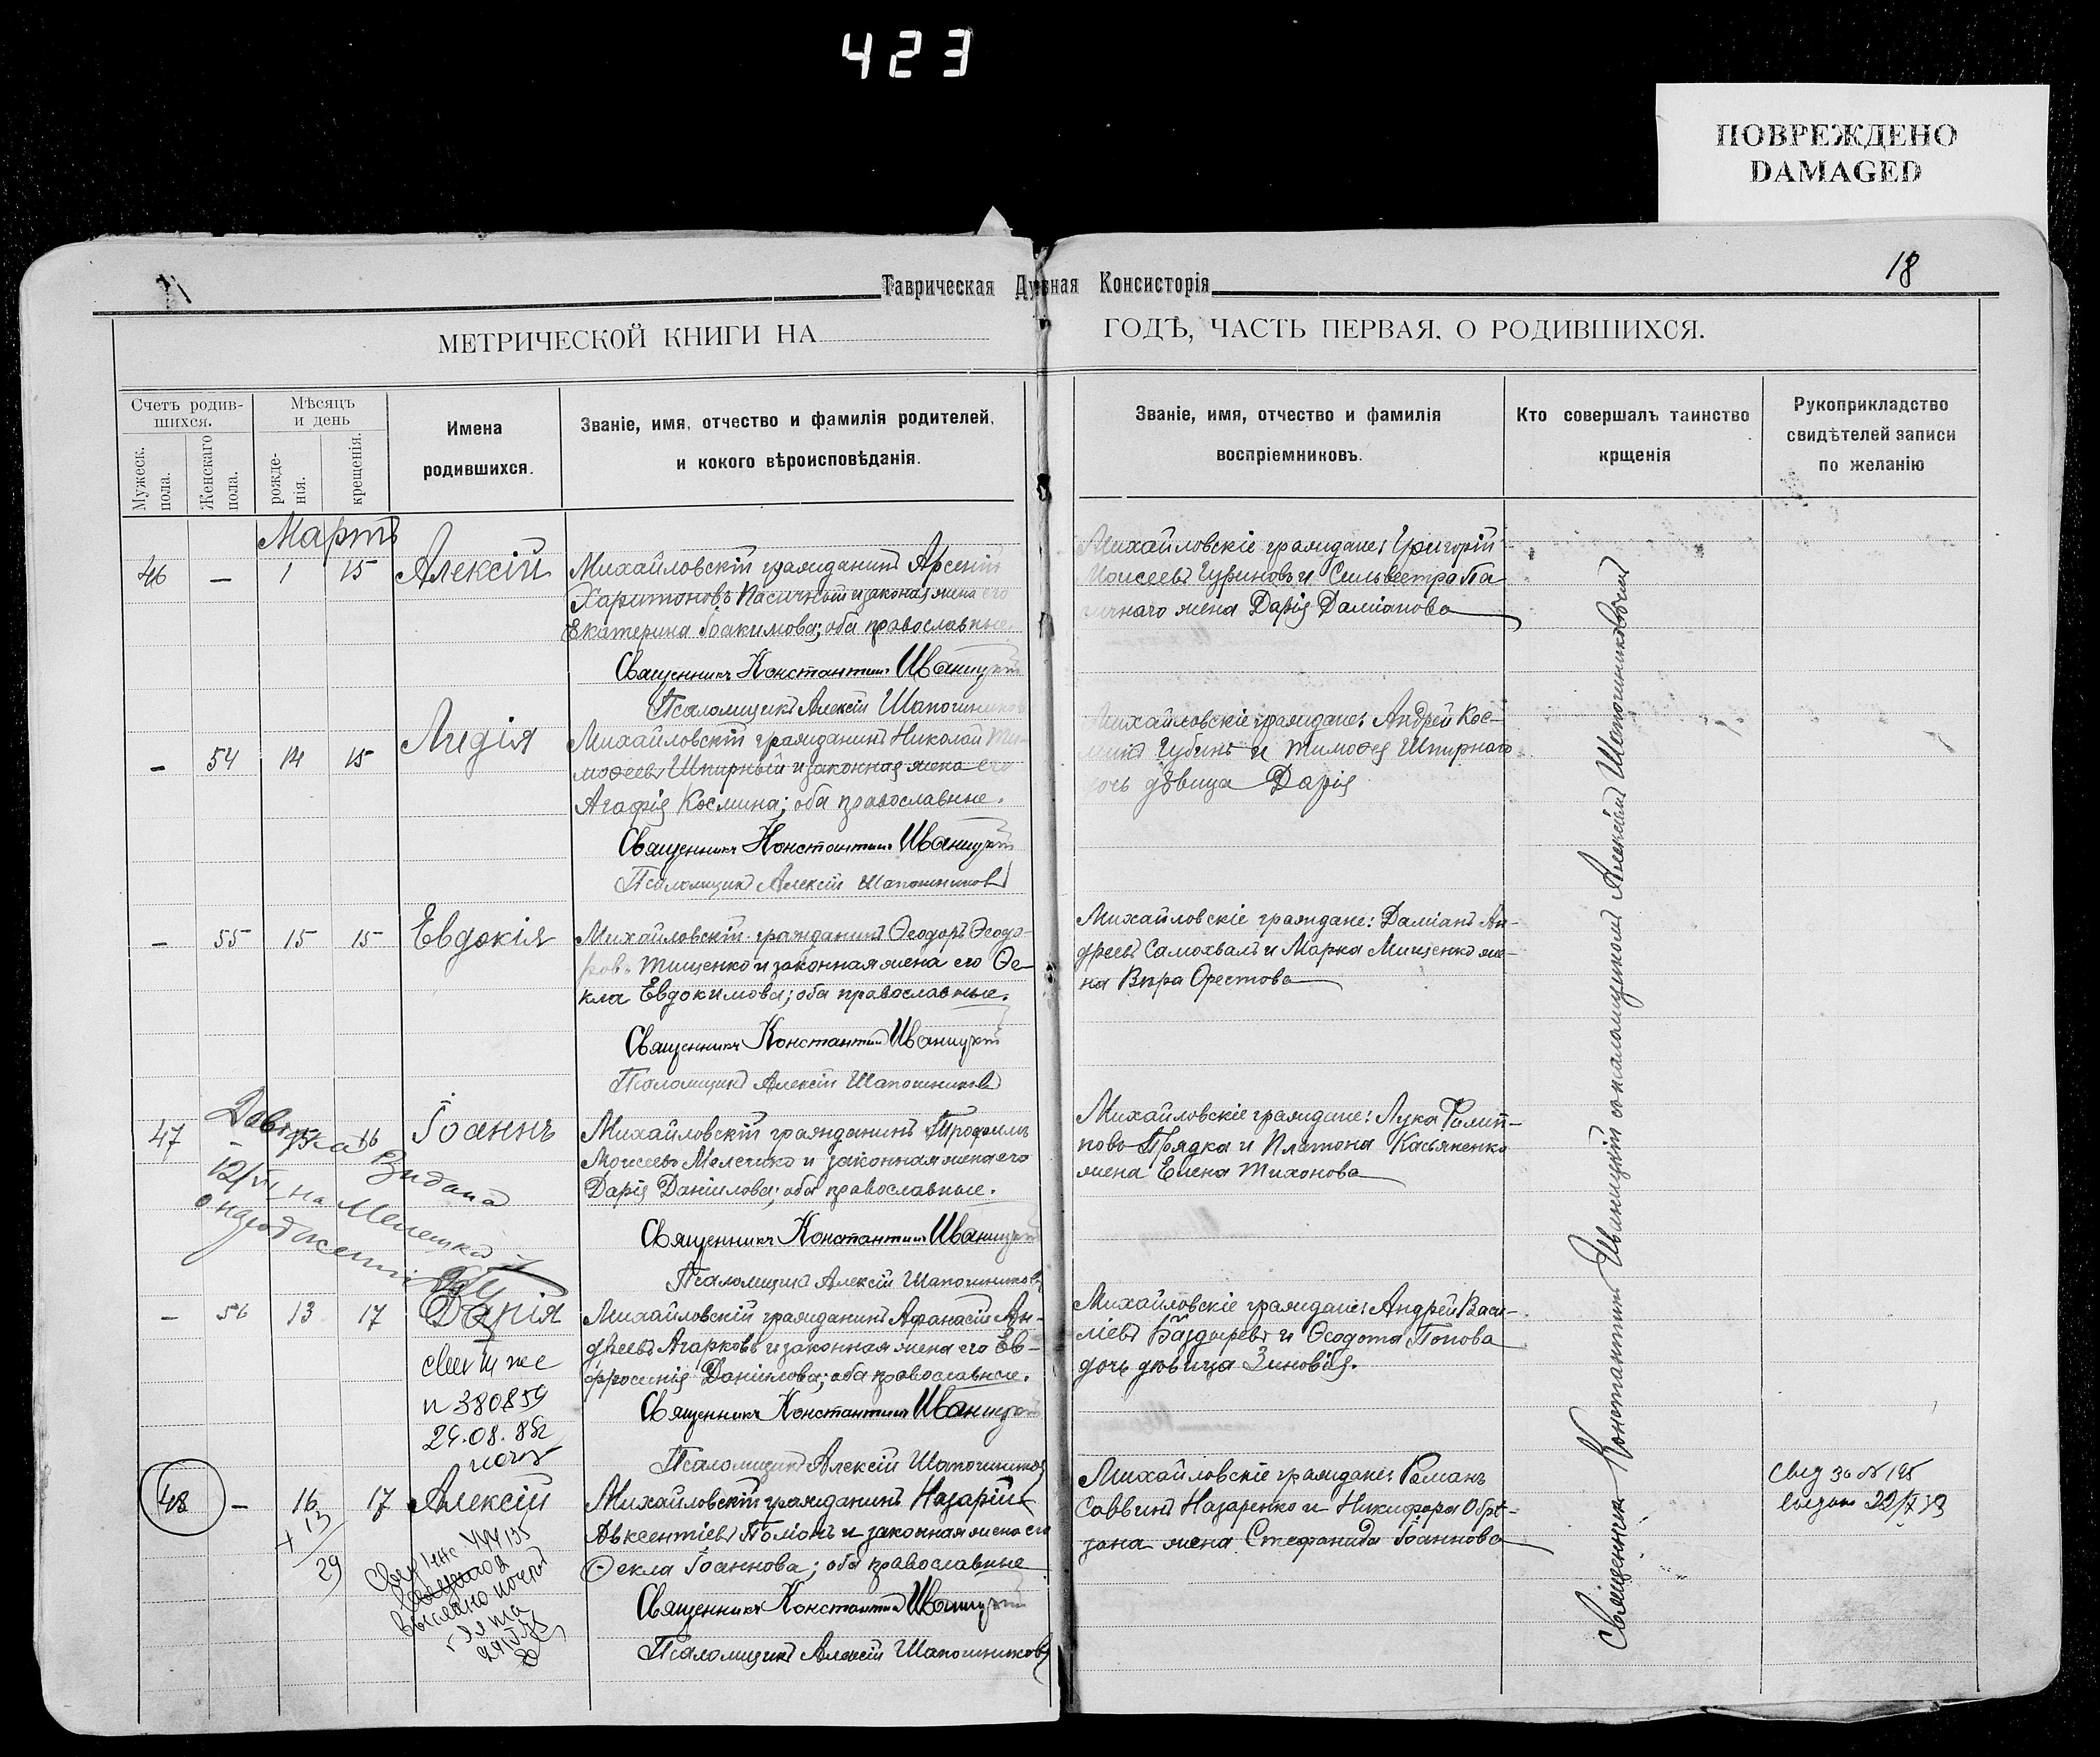 423
ПОВРЕЖДЕНО
DAMAGED
18
Таврическая Духвная Консисторія
МЕТРИЧЕСКОЙ КНИГИ НА ГОДЪ, ЧАСТЬ ПЕРВАЯ, О РОДИВШИХСЯ.
Счетъ родив-
шихся.
Мужеск. пола.
Женскаго пола.
Мѣсяцъ
и день
рожде-
нія.
крещенія.
Имена
родившихся.
Званіе, имя, отчество и фамилія родителей,
и кокого вѣроисповѣданія.
Званіе, имя, отчество и фамилія
воспріемниковъ.
Кто совершалъ таинство
крщенія
Рукоприкладство
свидѣтелей записи
по желанію
Мартъ
46 — 1 15 Алексій
Михайловскій гражданинъ Арсеній
Харитоновъ Пасичный и законая жена его
Екатерина Іоакимова; оба православные.
Священникъ Константинъ Иваницкій
Псаломщикъ Алексій Шапошников
Михайловскіе граждане: Григорій
Моисеевъ Цуриновъ и Сильвестра Па
ичнаго жена Дарія Даміанова
— 54 14 15 Лидія
Михайловскій гражданинъ Николай Ти-
мофеевъ Шпирный и законная жена его
Агафія Космина; оба православные.
Священникъ Константинъ Иваницкій
Псаломщикъ Алексій Шапошниковъ
Михайловскіе граждане: Андрей Кос-
минъ Губинъ и Тимофея Шпирнаго
дочь дѣвица Дарія
— 55 15 15 Евдокія
Михайловскій гражданинъ Ѳеодоръ Ѳеодо-
ровъ Тищенко и законная жена его Ѳе-
кла Евдокимова; оба православные.
Священникъ Константинъ Иваницкій
Псаломщикъ Алексій Шапошниковъ
Михайловскіе граждане: Даміанъ Ан-
дреевъ Самохвалъ и Марка Мищенко же-
на Вѣра Орестова
47 — 15 16 Іоаннъ
Довідка видана
12/VI на Мелешко
о народженні
Михайловскій гражданинъ Трофимъ
Моисеевъ Мелешко и законная жена его
Дарія Даніилова; оба православные.
Священникъ Константинъ Иваницкій
Псаломщикъ Алексій Шапошников
Михайловскіе граждане: Лука Филип-
повъ Прядка и Платона Касьяненко
жена Елена Тихонова
— 56 13 17 Дарія
Михайловскій гражданинъ Афанасій Ан-
дреевъ Агарковъ и законная жена его Ев-
фросинія Даніилова; оба православные.
Священникъ Константинъ Иваницкій
Псаломщикъ Алексій Шапошников
Михайловскіе граждане: Андрей Васи-
ліевъ Баздыревъ и Ѳеодота Попова
дочь дѣвица Зиновія.
n 380859
48 — 16 17 Алексій
+ 13
29
Михайловскій гражданинъ Назарій
Авксентіевъ Поміонъ и законная жена его
Ѳекла Іоаннова; оба православные
Священникъ Константинъ Иваницкій
Псаломщикъ Алексій Шапошниковъ
Михайловскіе граждане: Романъ
Саввинъ Назаренко и Никифора Обрѣ-
зана жена Стефанида Іоаннова
Священникъ Константинъ Иваницкій с псаломщикомъ Алексіемъ Шапошниковымъ